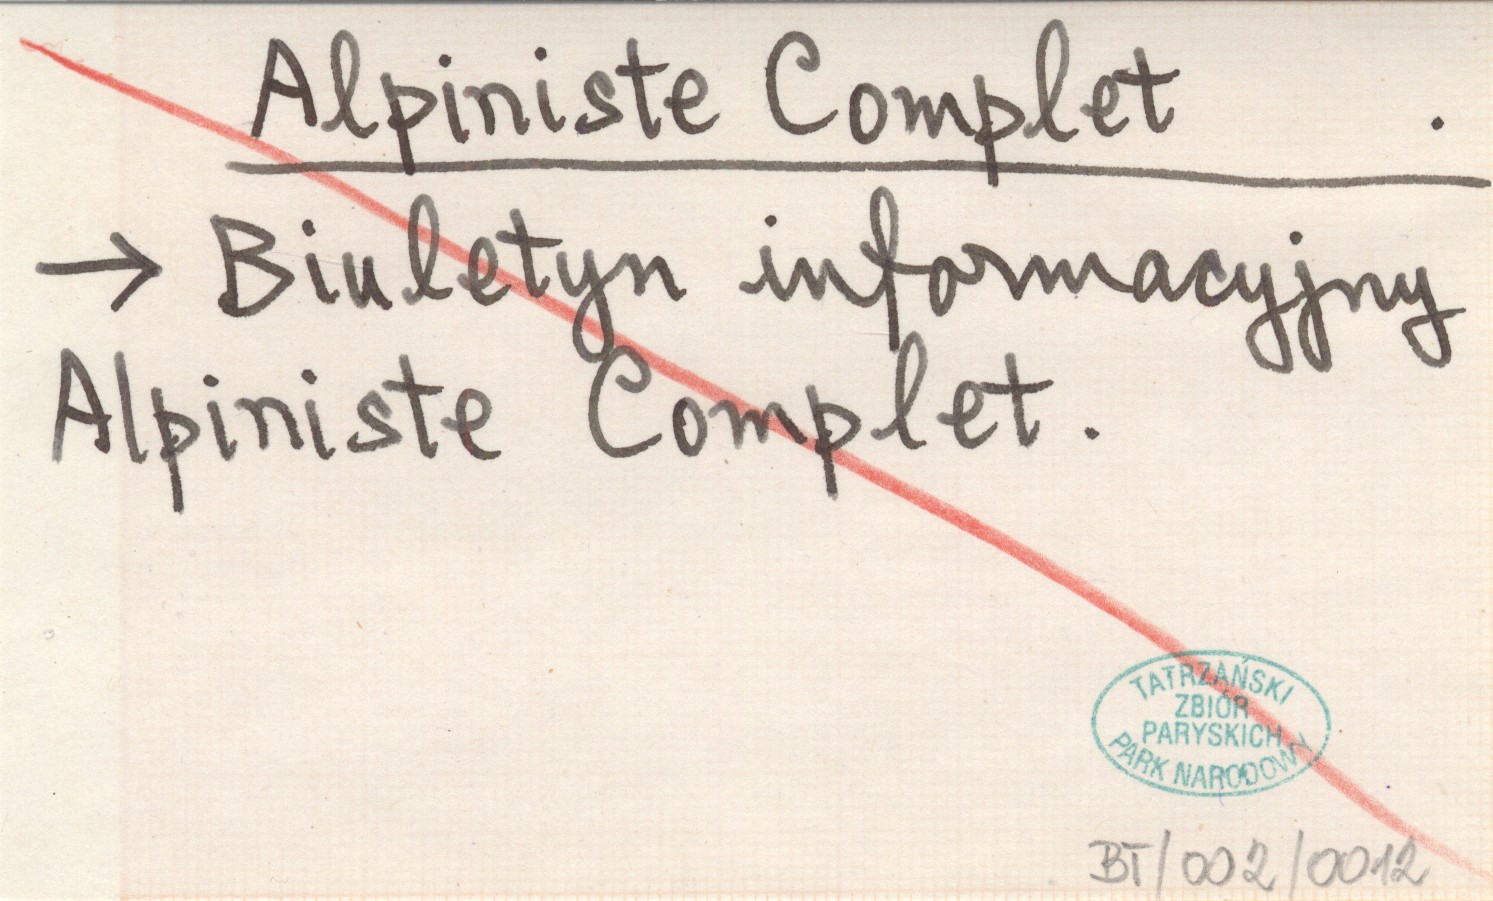 Alpiniste Complet .
→ Biuletyn informacyjny
Alpiniste Complet.
TATRZAŃSKI
ZBIÓR
PARYSKICH
PARK NARODOWY
BT/002/0012